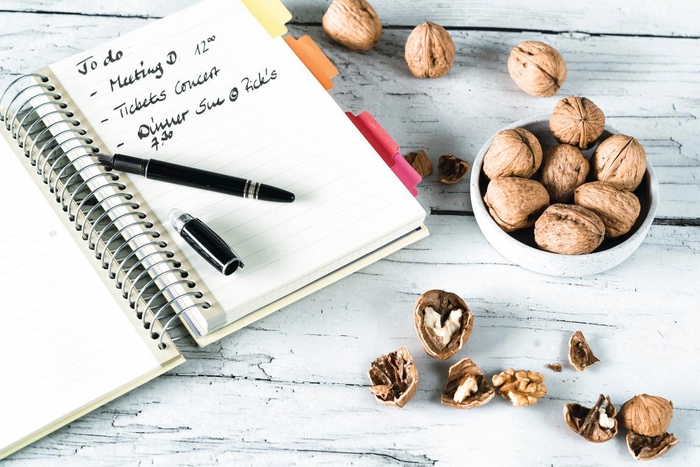 To do
- Meeting D 12⁰⁰
- Tickets Concert
- Dinner Sue @ Rick's
7.30